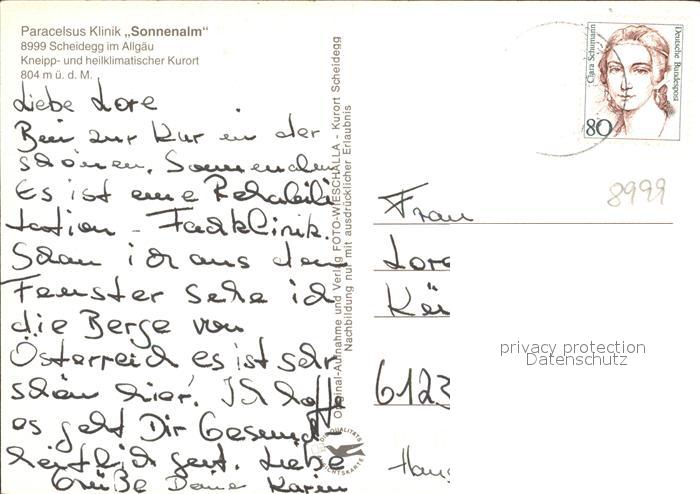 Paracelsus Klinik „Sonnenalm“
8999 Scheidegg im Allgäu
Kneipp- und heilklimatischer Kurort
804 m ü. d. M.
Liebe Lore
Bin zur Kur in der
schönen Sonnenalm
Es ist eine Rehabili
tation - Fachklinik.
Schau ich aus dem
Fenster sehe ich
die Berge von
Österreich es ist sehr
schön hier! Ich hoffe
es geht Dir Gesund-
heitlich gut. Liebe
Grüße Deine Karin
Original-Aufnahme und Verlag FOTO-WESCHALLA - Kurort Scheidegg
Nachbildung nur mit ausdrücklicher Erlaubnis
QUALITÄTS
Clara Schumann
Deutsche Bundespost
80
8999
Frau
Lore
6123
privacy protection
Datenschutz